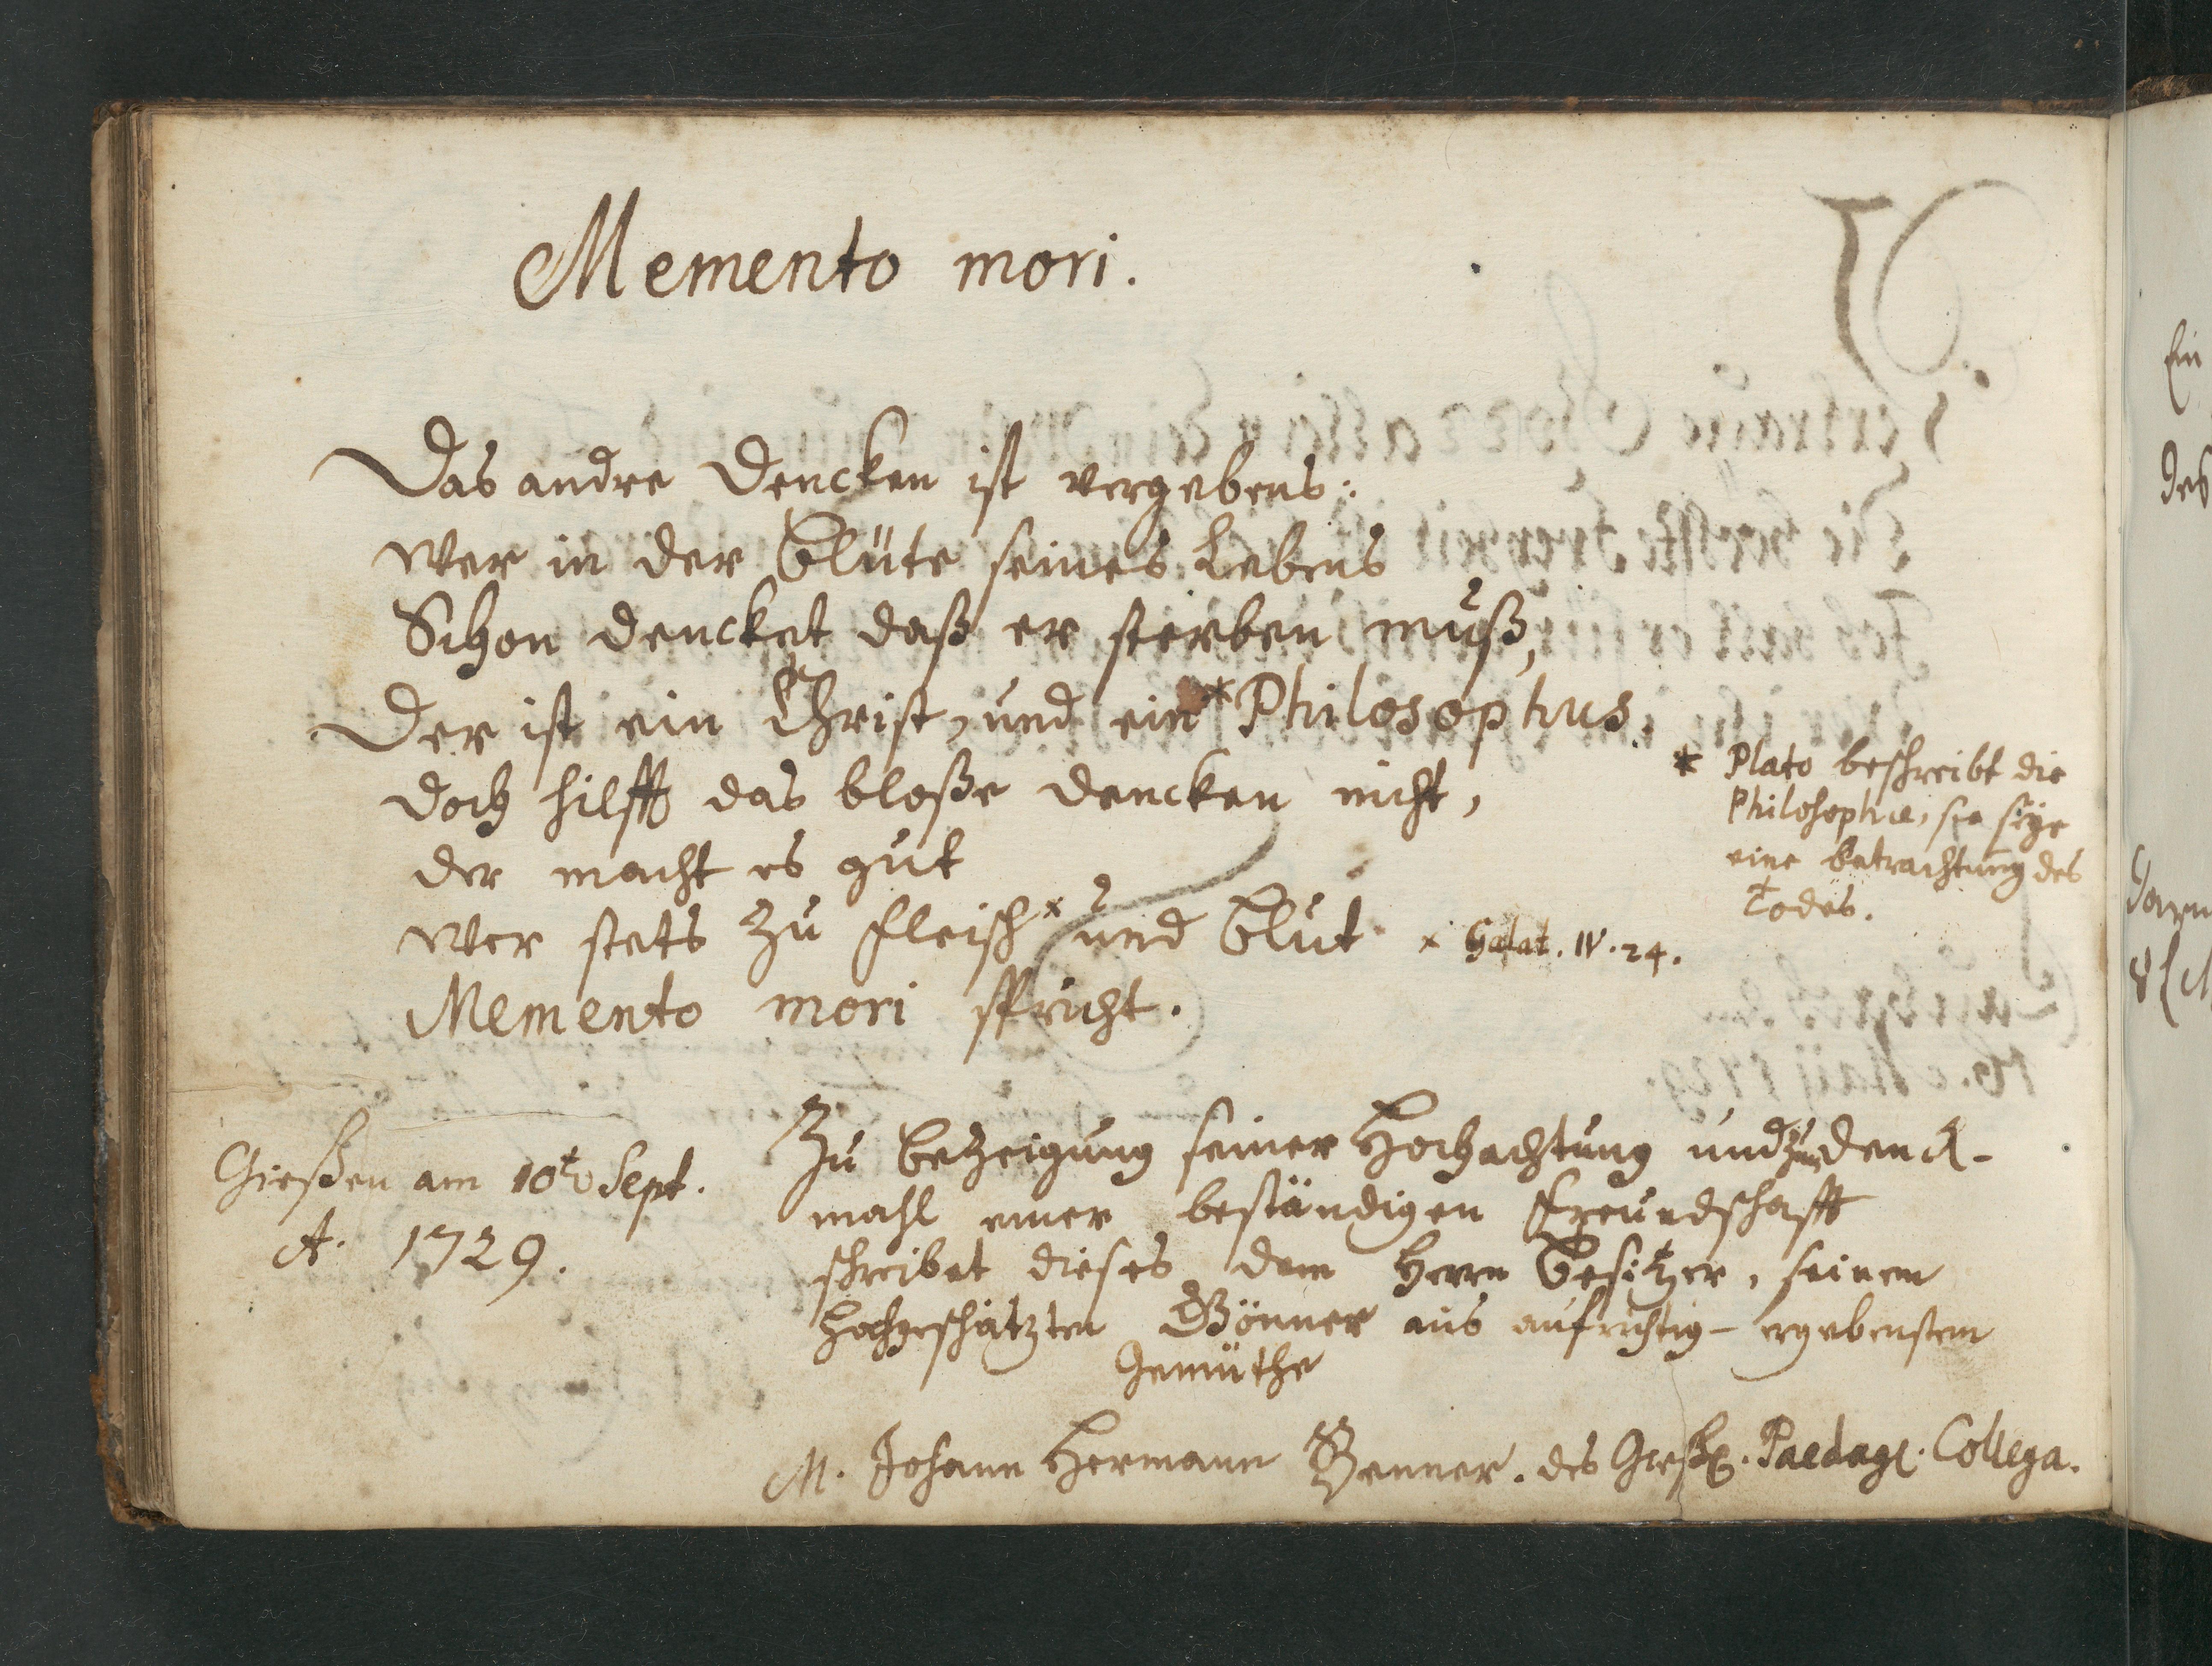 Memento mori.
Das andre Dencken ist vergebens:
Wer in der Blüte seines Lebens
Schon dencket daß er sterben muß,
Der ist ein Christ, und ein * Philosophus.
Doch hilfft das bloße dencken nicht,
der macht es gut
Wer stets zu Fleisch x und Blut
Memento mori spricht.
* Plato beschreibt die
Philosophie, sie seye
eine betrachtung des
Todes.
x Galat. IV. 24.
Gießen am 10t Sept.
A. 1729.
Zu bezeigung seiner Hochachtung und zum denck-
mahl einer beständigen Freundschafft
schreibet dieses dem Herrn Besitzer, seinem
Hochgeschätzten Gönner aus aufrichtig-ergebenstem
Gemüthe
M. Johann Hermann Benner. des Paedag. Collega.
Ein
des